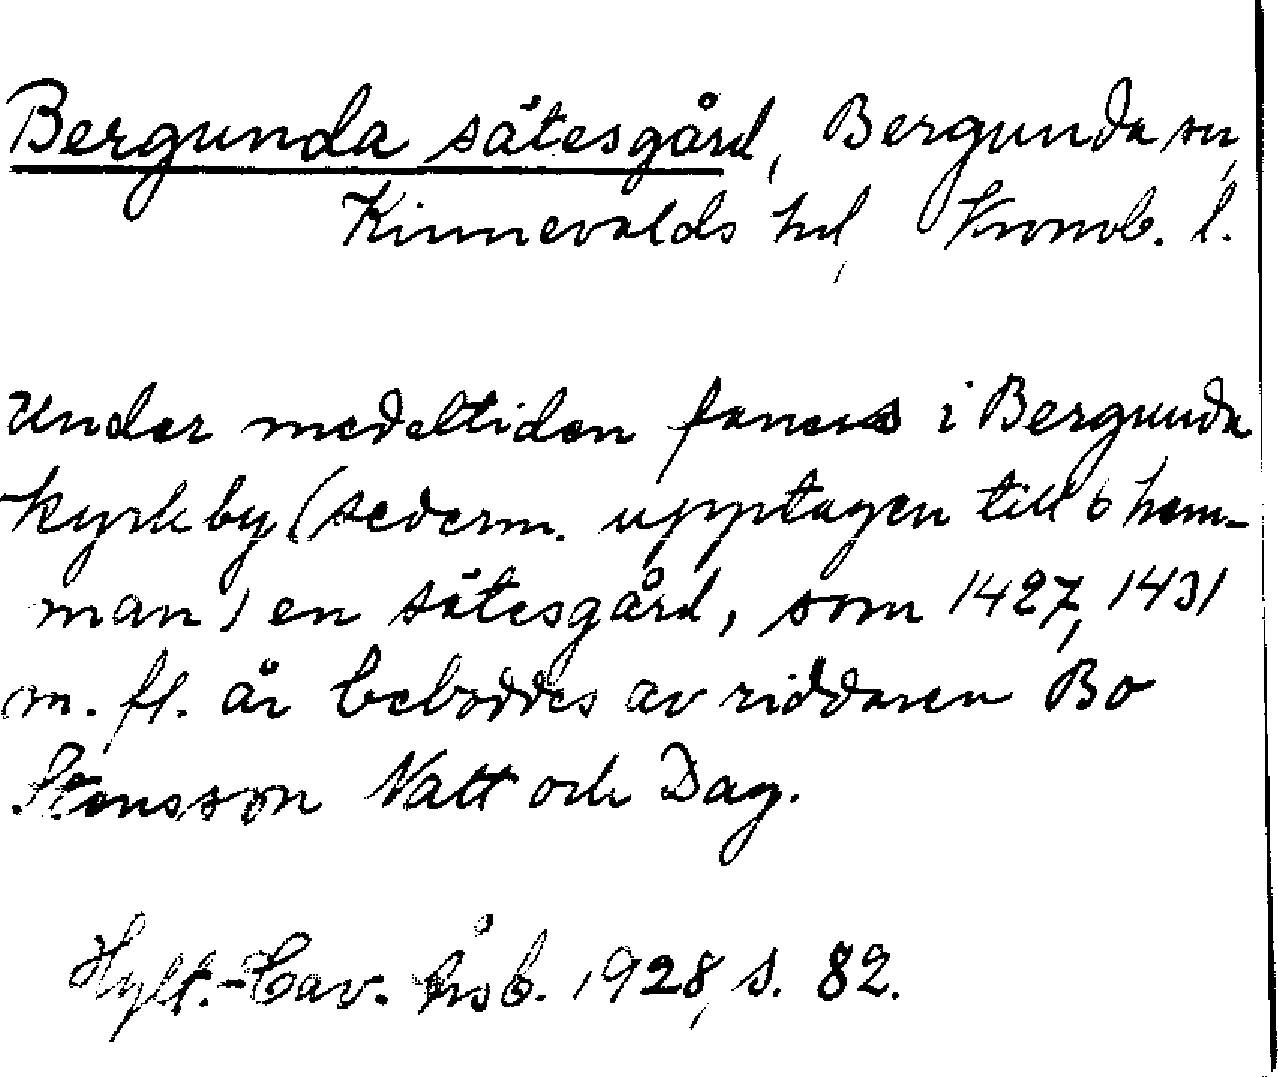 Bergunda sätesgård, Bergunda sn,
Kinnevalds hd, Kronob. l.
Under medeltiden fanns i Bergunda
kyrkby (sederm. upptagen till 6 hem-
man) en sätesgård, som 1427, 1431
m. fl. år beboddes av riddaren Bo
Stensson Natt och Dag.
Hylt.-Cav. Årsb. 1928, s. 82.